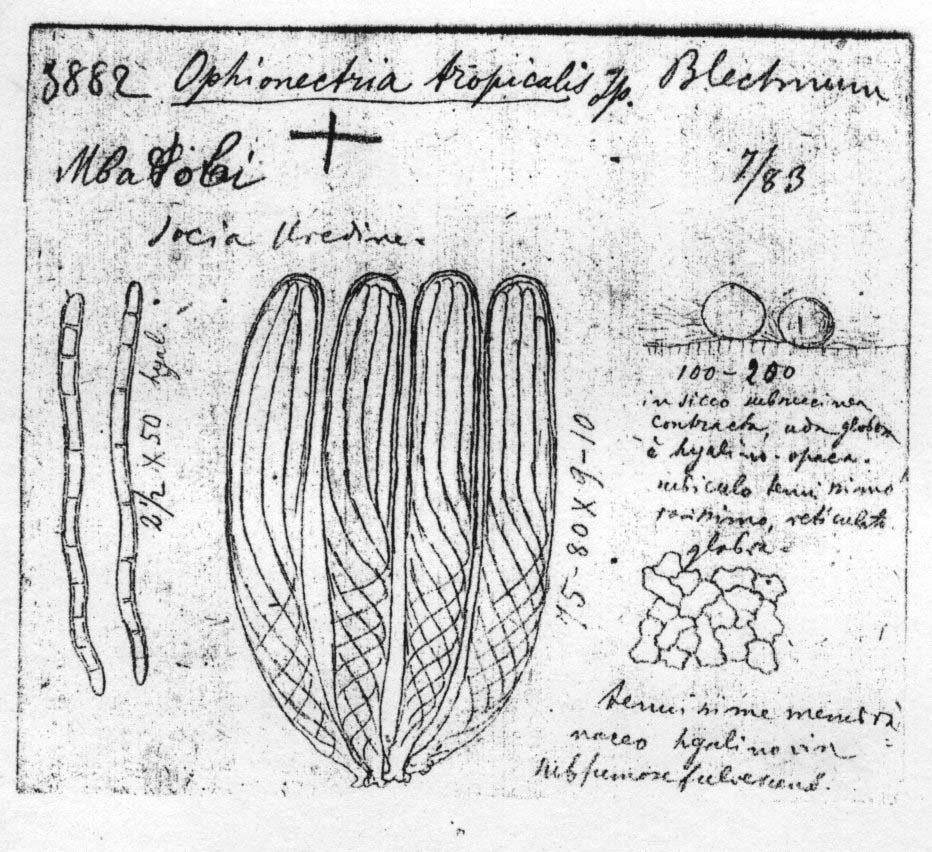 3882 Ophionectria tropicalis Sp. Blechnum
+
Mbatobi 7/83
Socia Uredine.
2½ X 50 hyal.
75-80X9-10
100-200
in sicco
contracta, uda globosa
e hyalino-opaca.
subiculo tenuissimo
rarissimo, reticulato
globosa
tenuissime membra
naceo hyalino vix
subfumose fulvescens.